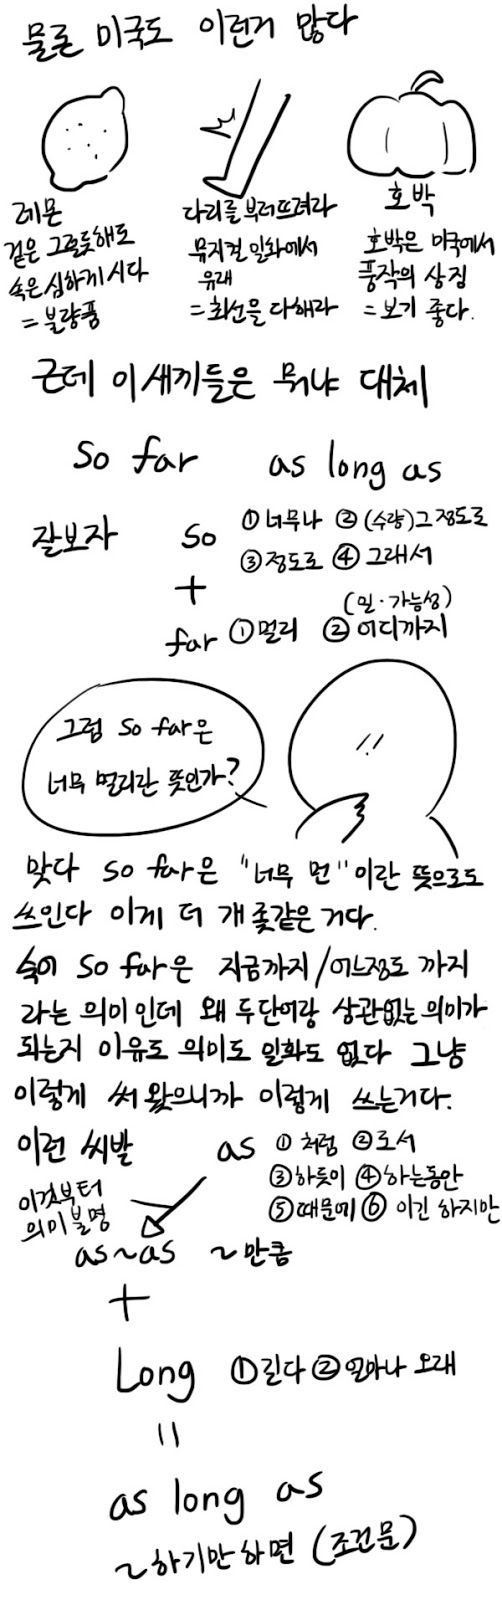 물론 미국도 이런거 많다
레몬
겉은 그럴듯해도
속은 심하게 시다
= 불량품
다리를 부러뜨려라
뮤지컬 일화에서
유래
= 최선을 다해라
호박
호박은 미국에서
풍작의 상징
= 보기 좋다.
근데 이새끼들은 뭐냐 대체
so far as long as
잘보자
so ①너무나 ②(수량)그정도로
③정도로 ④그래서
+
far ①멀리 ②어디까지
(일·가능성)
그럼 so far은
너무 멀리란 뜻인가?
맞다 so far은 "너무 먼"이란 뜻으로도
쓰인다 이게 더 개좆같은거다.
숙어 so far은 지금까지/어느정도 까지
라는 의미인데 왜 두단어랑 상관없는 의미가
되는지 이유도 의미도 일화도 없다 그냥
이렇게 써왔으니까 이렇게 쓰는거다.
이런 씨발
as ①처럼 ②로서
③하듯이 ④하는동안
⑤때문에 ⑥이긴 하지만
이것부터
의미불명
as~as ~만큼
+
Long ①길다 ②얼마나 오래
=
as long as
~하기만하면 (조건문)